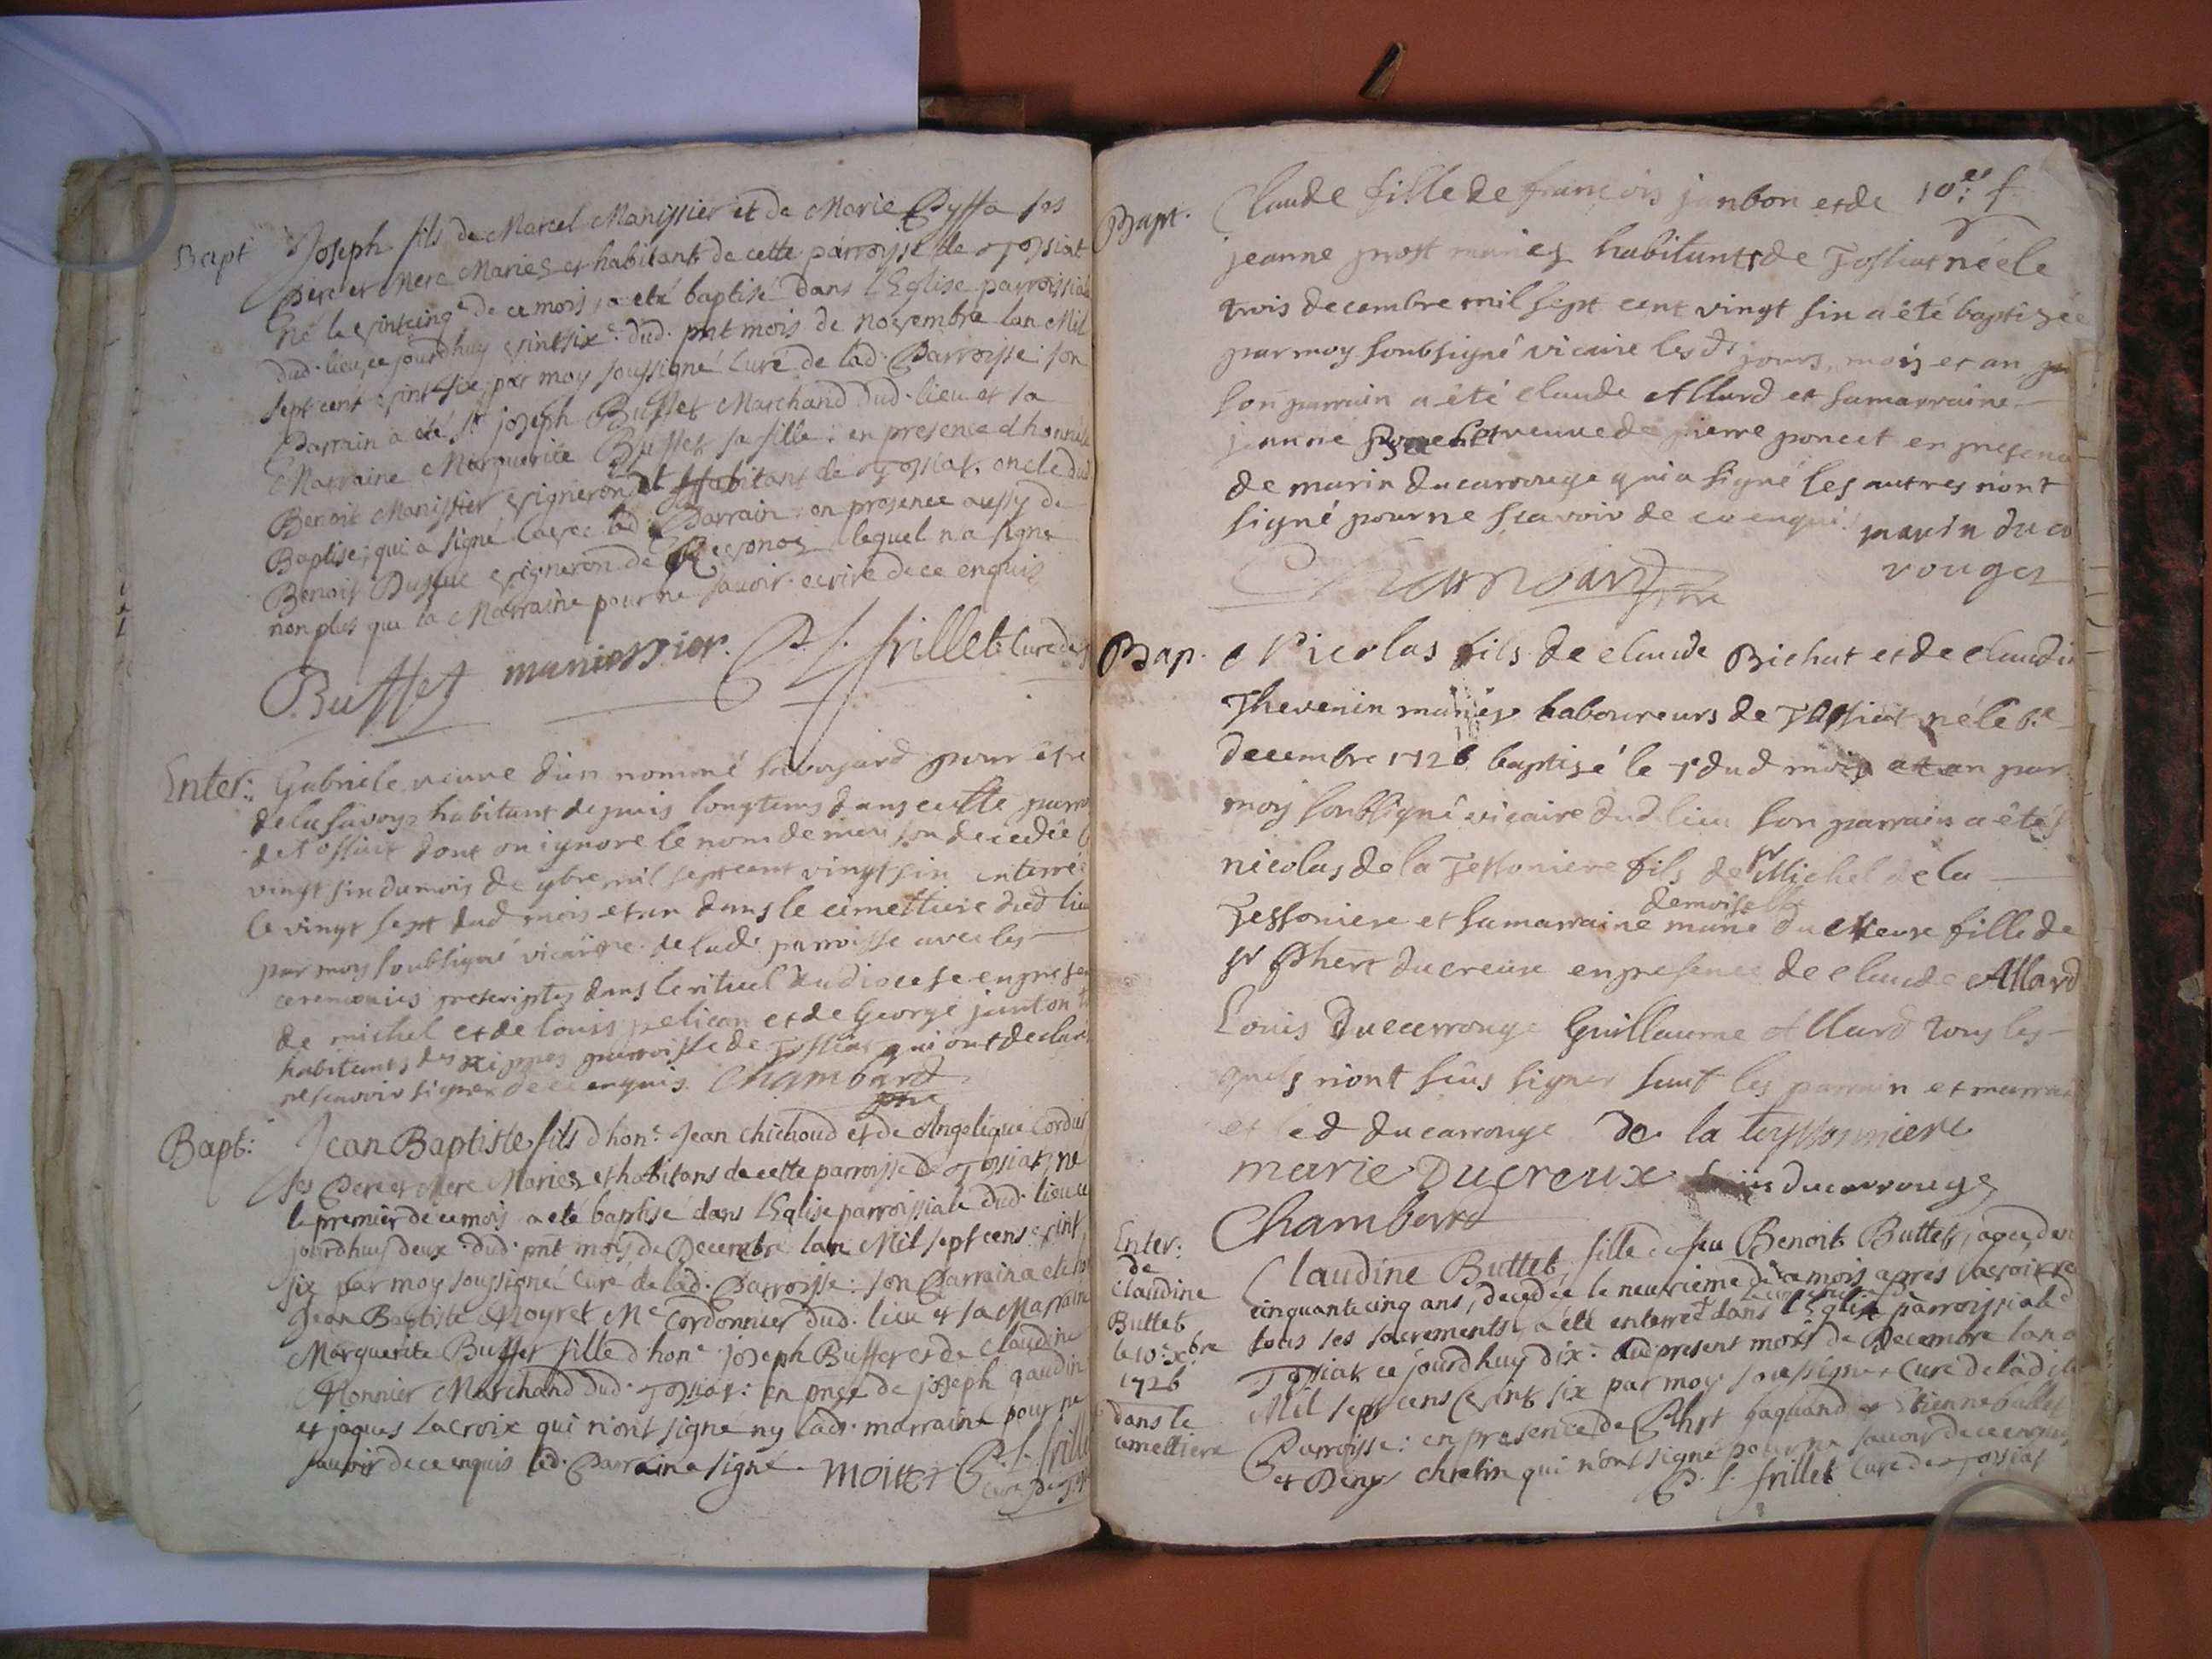 Bapt Joseph fils de Marcel Manissier et de Marie Pyffa ses
Pere et Mere Mariés et habitants de cette parroisse de Tossiat
né le vintcinq.e de ce mois, a eté baptisé dans l'Eglise parroissia
dud. lieu, ce jourdhuy vintsix.e dud. pnt mois de novembre lan Mil
sept cent vint six, par moy soussigné Curé de lad. Parroisse son
Parrain a eté Sr joseph Buffet Marchand dud. lieu et sa
Marraine Marguerite Buffet sa fille: en presence d honnête
Benoit Manissier vigneron et Habitant de Tossiat, oncle dud
Baptisé; qui a signé avec led. Parrain, en presence aussy de
Benoit vigneron de Revonas lequel n'a signé
non plus que la Marraine pour ne savoir ecrire de ce enquis
Buffet manissier. P. f. frillet Curé de
Enter: Gabriele veuve d'un nommé savoyard pour etre
de la Savoye habitant depuis longtems dans cette parro
de Tossiat dont on ignore le nom de maison decedée
vingt sin du mois de 9bre mil sept cent vingt sin enterrée
le vingt sept dud mois et an dans le cimettiere dud lieu
par moy soubsigné vicaire de lad. parroisse avec les
ceremonies prescriptes dans le rituel du diocese en presen
de michel et de louis pelican et de George janton
habitants des rippes parroisse de Tossiat qui ont declaré
ne scavoir signer de ce enquis. Chambard
ptre
Bapt: Jean Baptiste fils d hon.e Jean Chichoud et de Angelique Cordui
ses Pere et Mere Mariés et habitans de cette parroisse de Tossiat, né
le premier de ce mois a eté baptisé dans l'Eglise parroissiale dud. lieu ce
jourdhuy deux dud. pnt mois de Decembre lan Mil sept cens vint
six par moy soussigné Curé de lad. Parroisse: son Parrain a eté
Jean Baptiste Moyret Me Cordonnier dud. lieu et sa Marraine
Marguerite Buffet fille d hon.e joseph Buffet et de Claudine
Monnier Marchand dud. Tossiat: en pnce de joseph gaudin
et jaques Lacroix qui n'ont signé ny lad. marraine pour ne
savoir de ce enquis led. Parrain a signé. moiret P. f. frille
Curé de
Bapt. Claude fille de françois janbon et de 10.e f.
jeanne prost mariés habitants de Tossiat née le
trois decembre mil sept cent vingt sin a été baptizée
par moy soubsigné vicaire les dts jours, mois et an
son parrain a été claude Allard et sa marraine
jeanne veuve de pierre poncet en presence
de marin ducarrouge qui a signé les autres n'ont
signé pour ne scavoir de ce enquis marin du ca
rouges
Chambard ptre
Bap. Nicolas fils de claude Bichat et de claudi
Thevenin mariés laboureurs de Tossiat né le 6.e
decembre 1726 baptisé le 7 dud mois et an par
moy soubsigné vicaire dud lieu son parrain a été Sr
nicolas de la Tessoniere fils de Sr Michel de la
demoiselle
Tessoniere et sa marraine marie du creux fille de
Sr Phert ducreux en presence de claude Allard
Louis Ducarrouge Guillaume Allard tous les
quels n'ont sçus signer sauf les parrain et marrai
et led ducarrouge De la teyssonniere
marie Ducreux louis ducarrouge
Chambard
Enter:
de
Claudine
Buttet
le 10.e Xbre
1726
dans le
cimettiere
Claudine Buttet, fille de feu Benoit Buttet, agée d'en
cinquante cinq ans, decedée le neuvieme de ce mois aprés avoir re
tous ses sacrements, a été enterrée dans l'Eglise parroissiale d
Tossiat ce jourdhuy dix.e dud present mois de Decembre lan
Mil sept cens vint six par moy soussigné Curé de ladite
Parroisse: en presence de Phrt Paquand et Etienne buttet
et Denys chretin qui n'ont signé pour ne savoir de ce enquis
P. f. frillet Curé de Tossiat